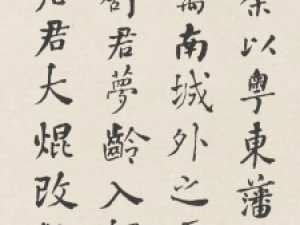 以粤東藩
南城外之
君夢齡入
君大焜改